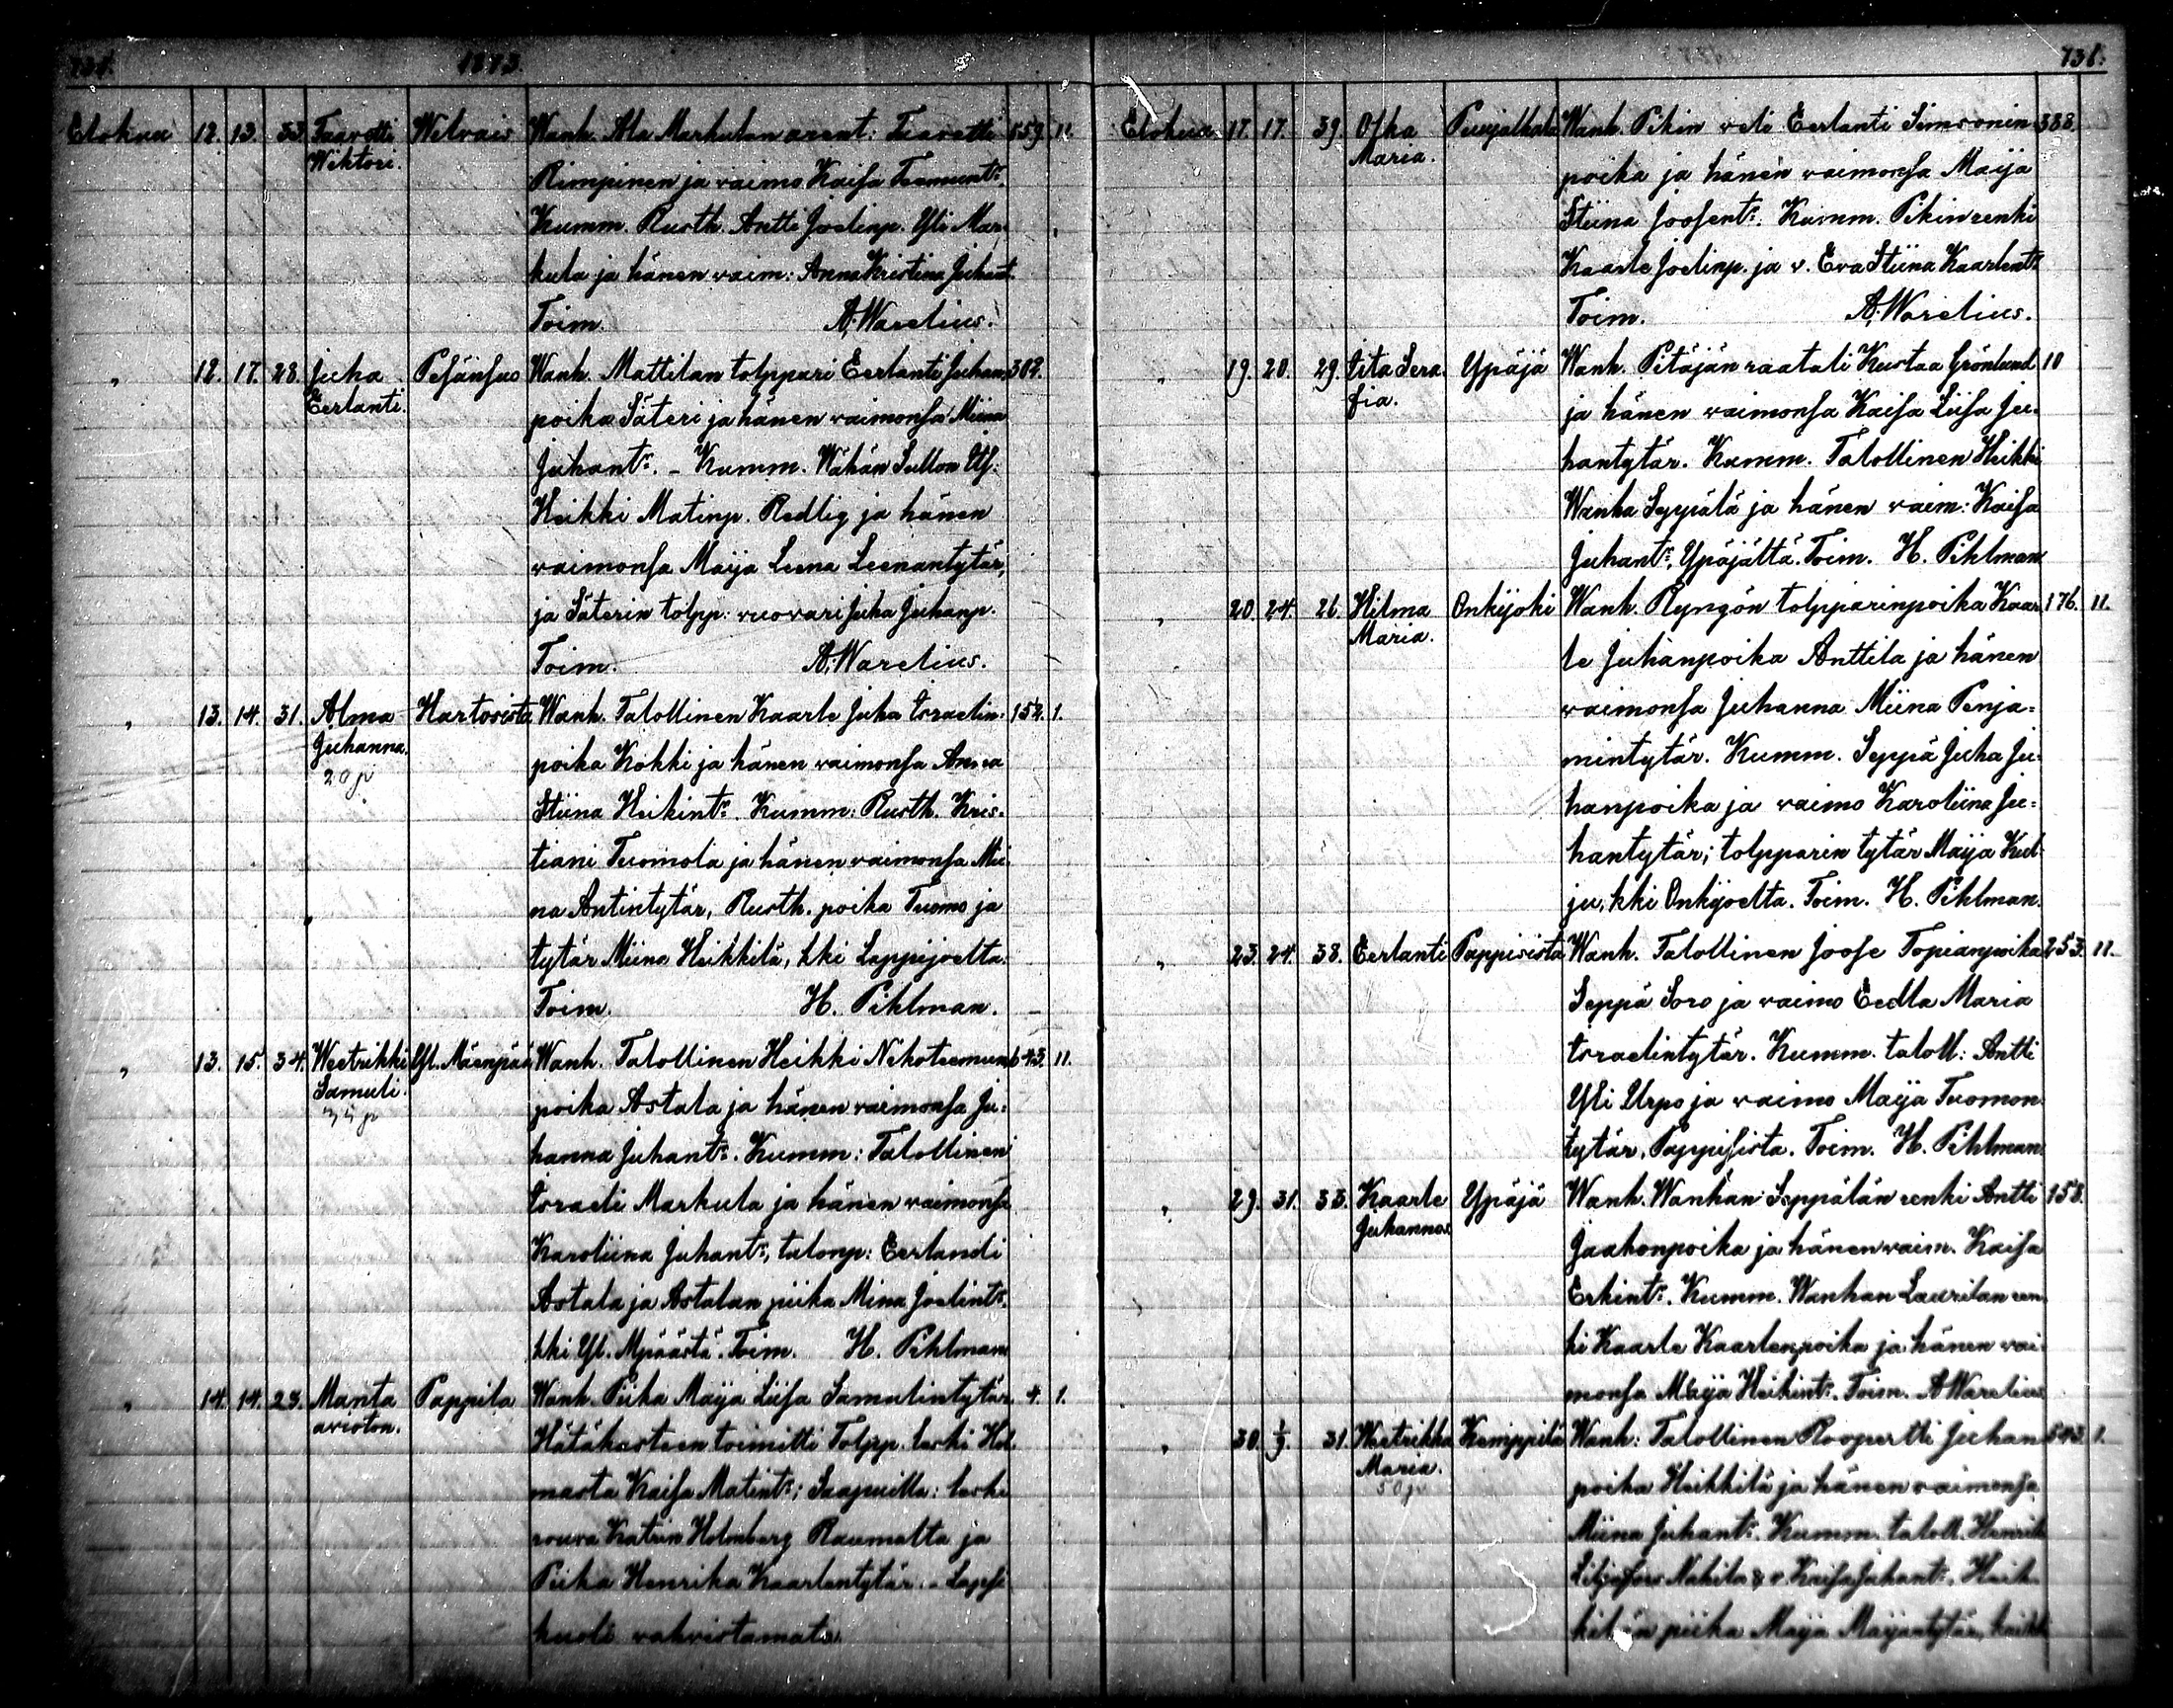 731.
1873.
Elokuu 12. 13. 33. Taavetti Welvais Wanh. Ala Markulan arent: Taavetti 559. 11.
Wihtori. Rimpinen ja vaimo Kaisa Tommintr.
Kumm. Rusth. Antti Joelinp. Yli Mar-
kula ja hänen vaim: Anna Kristina Juhant.
Toim. A. Warelius.
" 12. 17. 28. Juha Pesänsuo Wanh. Mattilan tolppari Eerlanti Juhan 302.
Eerlanti. poika Säteri ja hänen vaimonsa Miina
Juhantr. - Kumm. Wähän Sullon Itf:
Heikki Matinp. Redlig ja hänen
vaimonsa Maija Leena Leenantytär,
ja Säterin tolpp: vuovari Juha Juhanp.
Toim. A. Warelius.
" 13. 14. 31. Alma Hartosista Wanh. Talollinen Kaarle Juha Israelin- 152. 1.
Juhanna. poika Kokki ja hänen vaimonsa Anna
20 p Stiina Heikintr. Kumm: Rusth. Kris-
tiani Tuomola ja hänen vaimonsa Mii-
na Antintytär, Rusth. poika Tuomo ja
tytär Miina Heikkilä, kki Lappijoelta.
Toim. H. Pihlman.
" 13. 15. 34. Weetrikki Yl. Mäenpää Wanh. Talollinen Heikki Nikoteemun 643. 11.
Samuli. poika Astala ja hänen vaimonsa Ju-
hanna Juhantr. Kumm: Talollinen
Israeli Markula ja hänen vaimonsa
Karoliina Juhantr, talonp: Eerlandi
Astala ja Astalan piika Mina Joelintr.
kki Yl. Mpäästä. Toim. H. Pihlman
" 14. 14. 23. Manta Pappila Wanh. Piika Maija Liisa Samulintytär 4. 1.
avioton. Hätäkasteen toimitti Tolpp. leski Hol-
masta Kaisa Matintr; Saapuilla: leski
rouva Katrin Holmberg Raumalta ja
Piika Henrika Kaarlentytär. - Lapsi
kuoli vahvistamata.
731.
Elokuu 17. 17. 39. Olka Punjalkala Wanh. Pihin veli Eerlanti Simsonin 388.
Maria. poika ja hänen vaimonsa Maija
Stiina Joosentr. Kumm. Pihin renki
Kaarle Joelinp. ja v. Eva Stiina Kaarlentr
Toim. A. Warelius.
" 19. 20. 29. Iita Sera- Ypäjä Wanh. Pitäjän raatali Kustaa Grönlund 10
fia. ja hänen vaimonsa Kaisa Liisa Ju-
hantytär. Kumm. Talollinen Heikki
Wanha Seppälä ja hänen vaim: Kaisa
Juhantr, Ypäjältä. Toim. H. Pihlman
" 20. 24. 26. Hilma Onkijoki Wanh. Ryngön tolpparinpoika Kaar- 176. 11.
Maria. le Juhanpoika Anttila ja hänen
vaimonsa Juhanna Miina Penja-
mintytär. Kumm. Seppä Juha Ju-
hanpoika ja vaimo Karoliina Ju-
hantytär; tolpparin tytär Maija Kul-
ju, kki Onkijoelta. Toim. H. Pihlman.
" 23. 24. 38. Eerlanti Pappisista Wanh. Talollinen Joose Topianpoika 253. 11.
Seppä Soro ja vaimo Eedla Maria
Israelintytär. Kumm. taloll: Antti
Yli Urpo ja vaimo Maija Tuomon
tytär, Pappisista. Toim. H. Pihlman
" 29. 31. 33. Kaarle Ypäjä Wanh. Wanhan Seppälän renki Antti 158.
Juhannes Jaakonpoika ja hänen vaim. Kaisa
Erkintr. Kumm. Wanhan Laurilan ren-
ki Kaarle Kaarlenpoika ja hänen vai-
monsa Maija Heikintr. Toim. A Warelius
" 30. 1/9. 31. Weetrikka Kemppilä Wanh: Talollinen Roopertti Juhan 543. 1.
Maria. poika Heikkilä ja hänen vaimonsa
50 p Miina Juhantr. Kumm. taloll. Henrik
Nahila & v. Kaisa Juhantr, Heik-
kilän piika Maija Maijantytär, kaikki